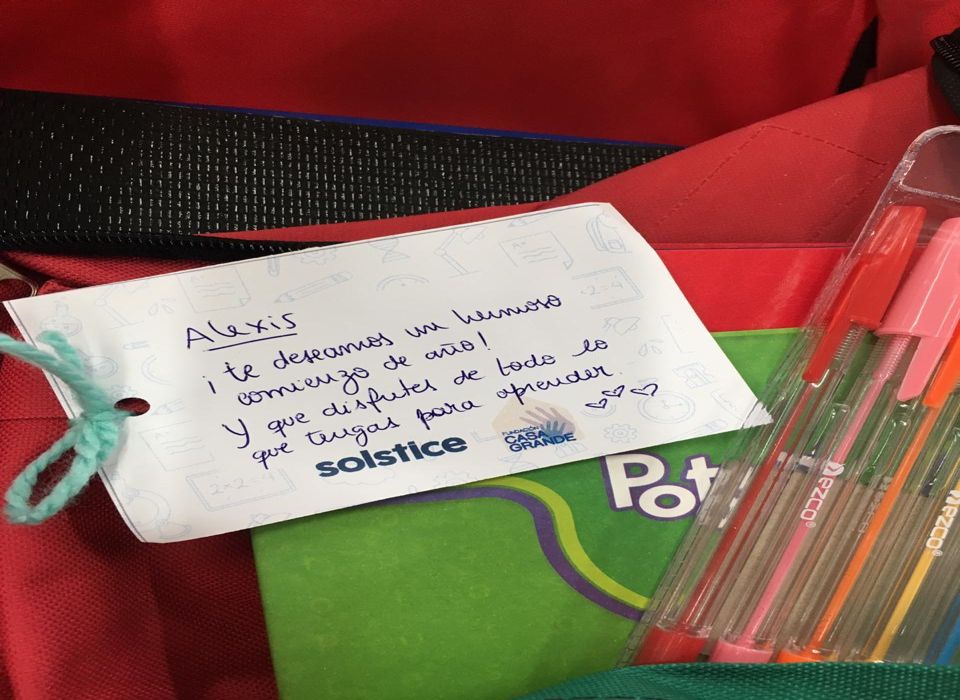 Alexis
¡te deseamos un hermoso
comienzo de año!
Y que disfrutes de todo lo
que tengas para aprender.
solstice
FUNDACIÓN
CASA
GRANDE
2×2=4
Pot
ezco
ezco